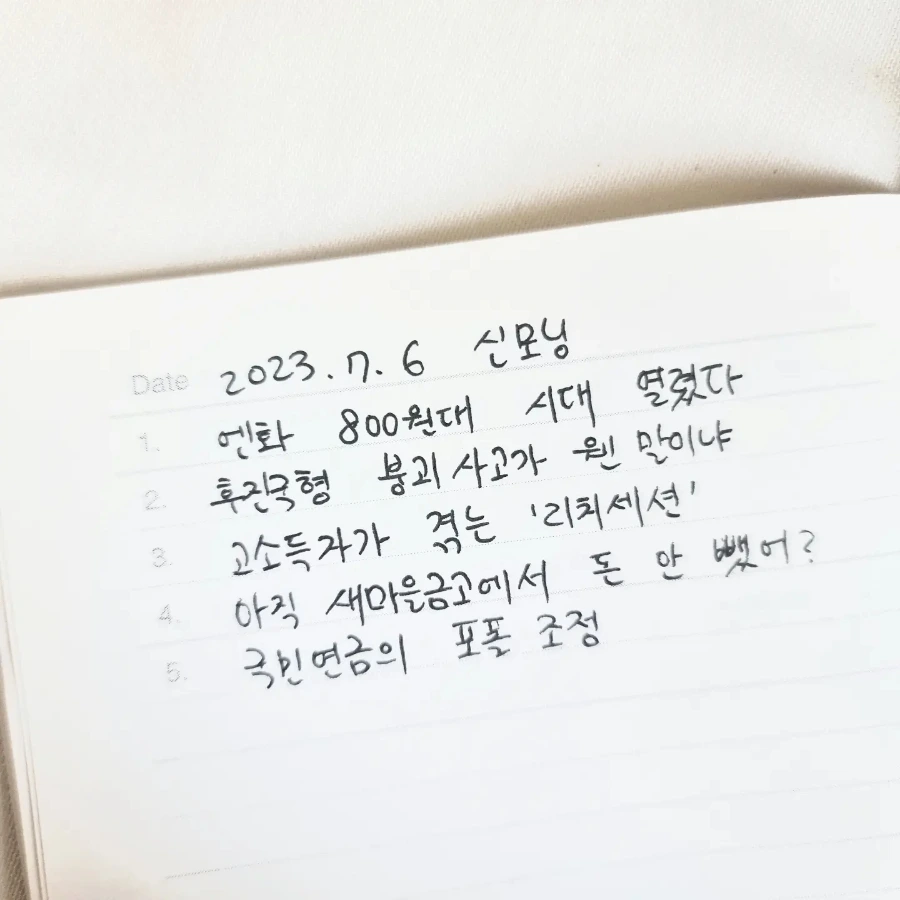 Date 2023.7.6 신모닝
1. 엔화 800원대 시대 열렸다
2. 후진국형 붕괴사고가 웬 말이냐
3. 고소득자가 겪는 '리치세션'
4. 아직 새마을금고에서 돈 안 뺐어?
5. 국민연금의 포폴 조정